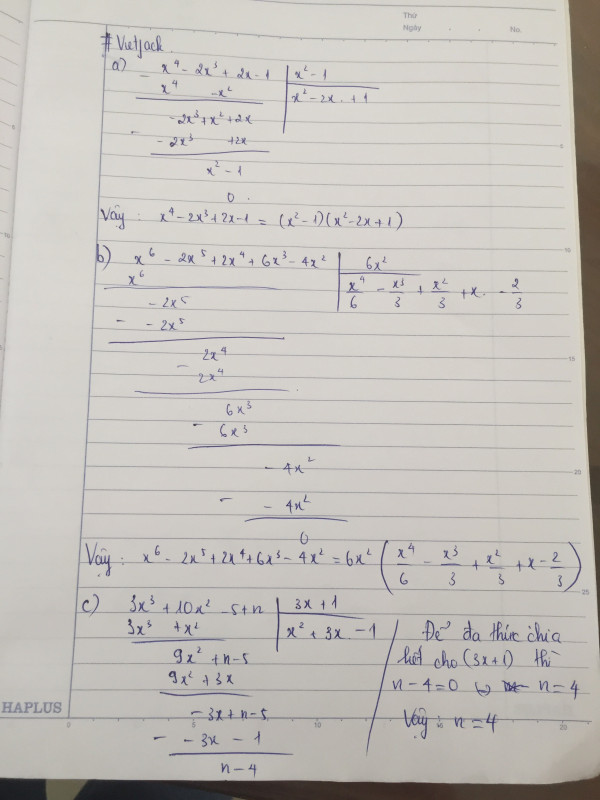 Thứ
Ngày . . No.
# VietJack
a) - x⁴ - 2x³ + 2x - 1 | x² - 1
x⁴ - x² | x² - 2x + 1
- 2x³ + x² + 2x
- - 2x³ + 2x
x² - 1
0
Vậy : x⁴ - 2x³ + 2x - 1 = (x² - 1)(x² - 2x + 1)
b) x⁶ - 2x⁵ + 2x⁴ + 6x³ - 4x² | 6x²
x⁶ | x⁴/6 - x³/3 + x²/3 + x - 2/3
- 2x⁵
- - 2x⁵
- 2x⁴
2x⁴
- 6x³
6x³
- 4x²
- - 4x²
0
Vậy : x⁶ - 2x⁵ + 2x⁴ + 6x³ - 4x² = 6x² (x⁴/6 - x³/3 + x²/3 + x - 2/3)
c) 3x³ + 10x² - 5 + n | 3x + 1
3x³ + x² | x² + 3x - 1
9x² + n - 5
9x² + 3x
- 3x + n - 5
- - 3x - 1
n - 4
Để đa thức chia
hết cho (3x + 1) thì
n - 4 = 0 n = 4
Vậy : n = 4
HAPLUS
0 5 10 15 20
5
10
15
20
25